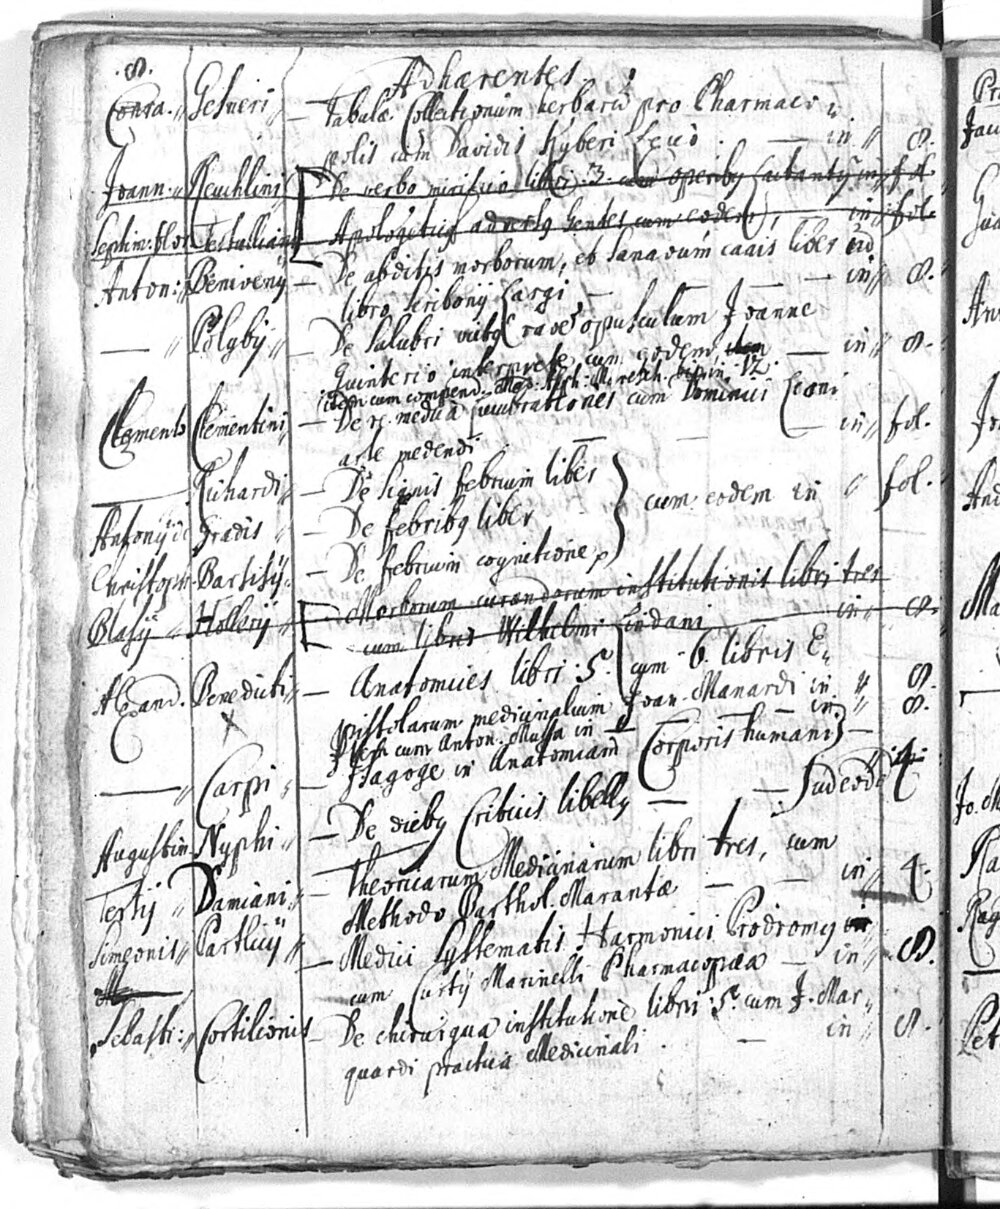 8.
Adhærentes
Conra. Gesneri — Tabulæ Collectionum herbarū pro Pharmaco-
polis cum Davidis Kyberi — in 8.
Joann: Reuchlini — De verbo mirifico libri: 3. cum in fol.
Septim: flor Tertulliani — Apologeticus adversus Gentes cum eodem, in fol.
Anton: Benivenij — De abditis morborum, et sanationum causis liber
libro Scribonij Largi — — — in 8.
— Polybij — De salubri victus opusculum Joanne
Quinterio interprete cum eodem — in 8.
(idem cum compend: in 12.
Clementis Clementini — De re medica lucubrationes cum Dominici Leoni
arte medendi — — in fol.
— Richardi — De signis febrium liber
Antonij de Gradis — De febribus liber } cum eodem in fol.
Christoph. Bartisij — De febrium cognitione
Blasij Hollerij — Morborum curandorum institutionis libri tres
cum libris Wilhelmi in 8.
Alexand. Benedicti — Anatomices libri: 5. cum 6. libris E-
pistolarum medicinalium Joan. Manardi in 8.
Item cum Anton. Musa in — in 8.
— Carpi — Isagoge in Anatomiam Corporis humani — 4.
Augustin Nyphi — De diebus Criticis libellus — — sud eodē
Tertij Damiani — Theoricarum Medicinarum libri tres, cum
Methodo Barthol. Marantæ — — in 4.
Simeonis Partlicij — Medici Systematis Harmonici Prodromus
cum Curtij Marinelli Pharmacopæa — in 8.
Sebasti: Cortilionis — De chirurgica institutione libri: 5. cum J. Mar-
quardi practica Medicinali. — in 8.